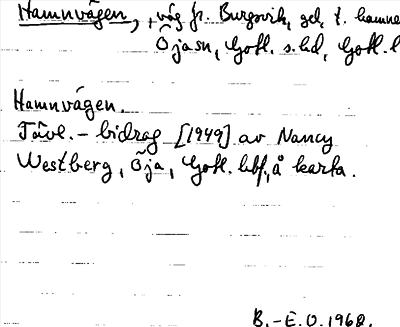 Hamnvägen, väg fr. Burgsvik, gd t. hamne
Öja sn, Gotl. s. hd, Gotl. l
Hamnvägen.
Tävl.-bidrag [1949] av Nancy
Westberg, Öja, Gotl. hbf, å karta.
B.-E.O. 1968.